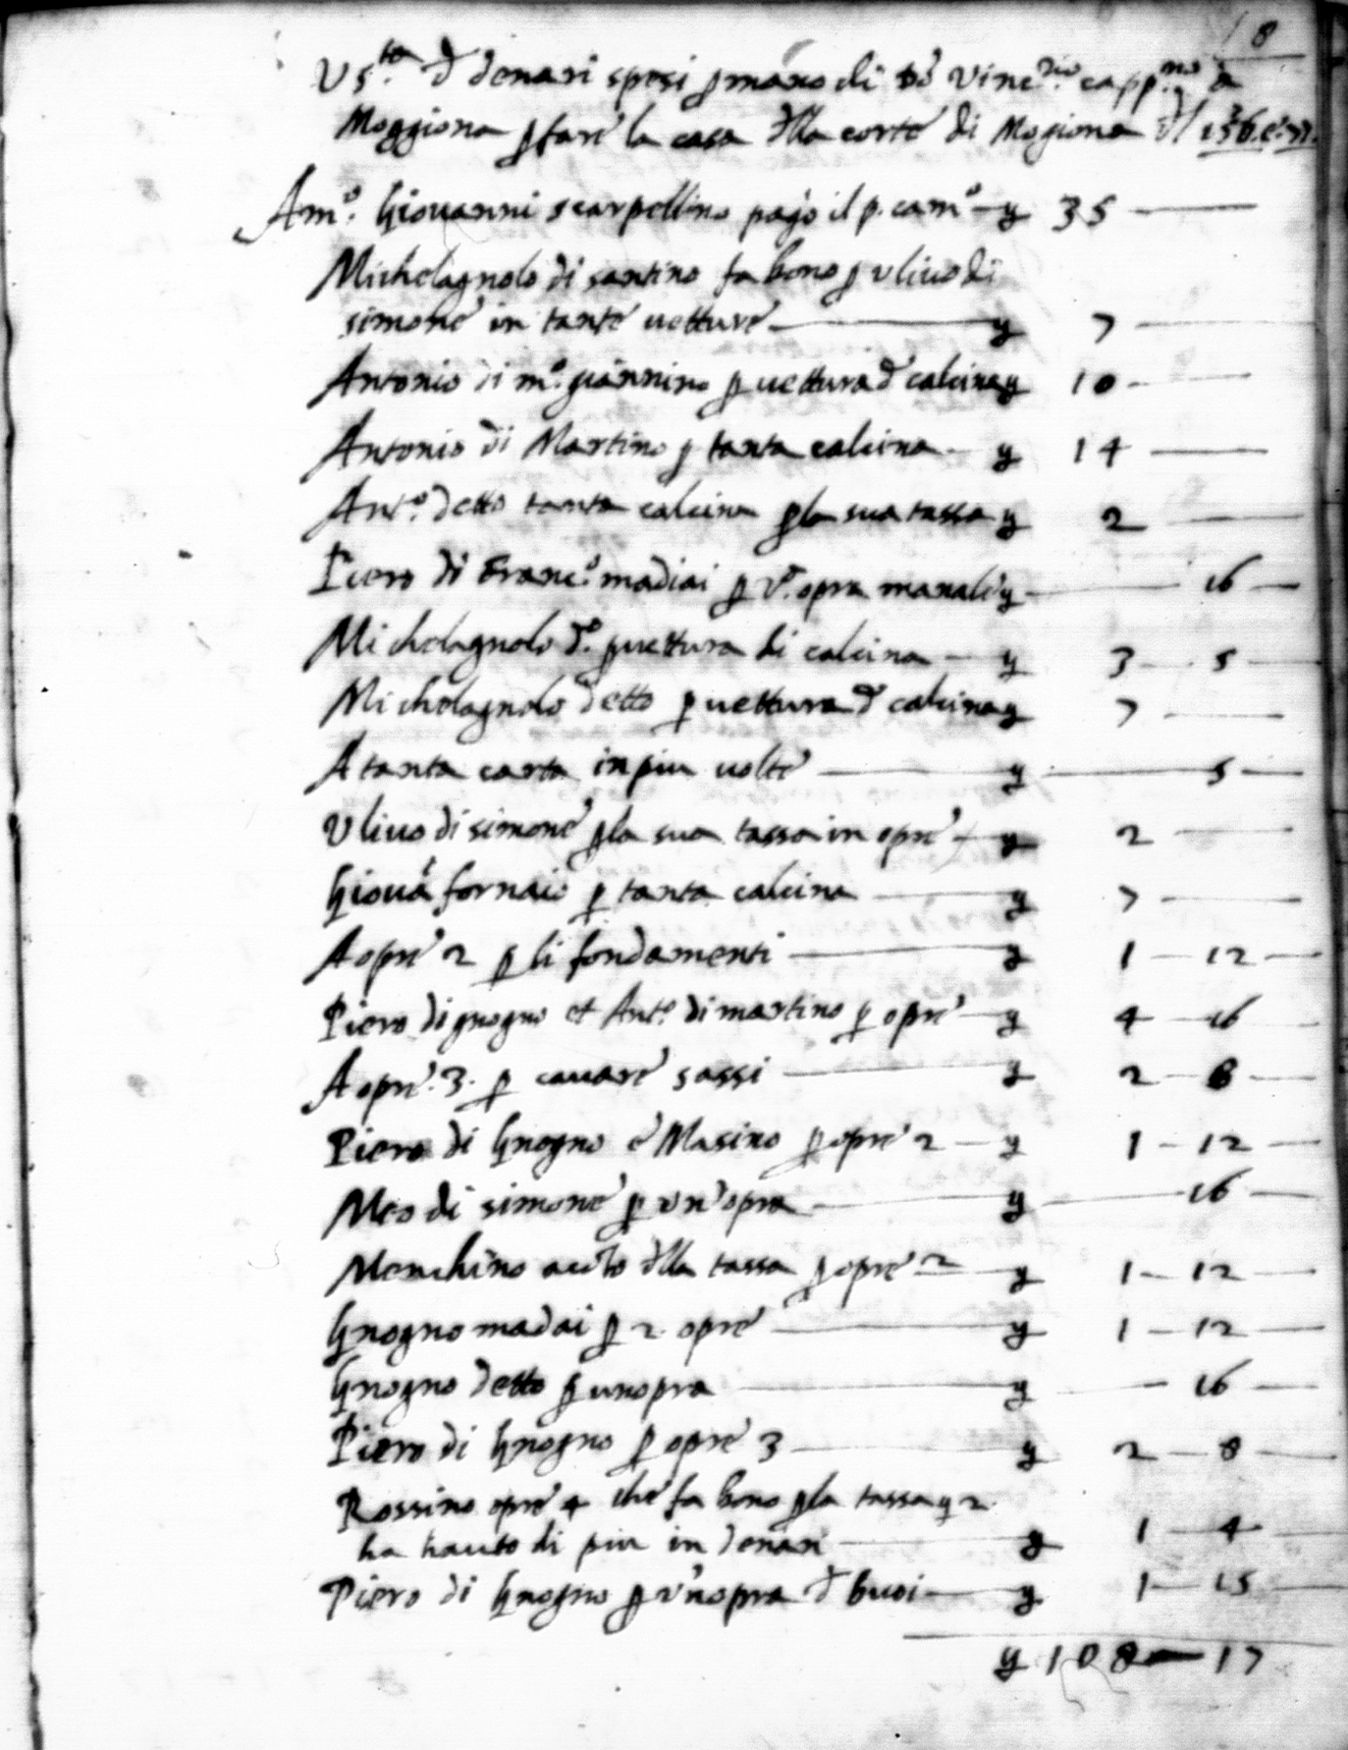 18
Us.ta d denari spesi p mano di Do Vinc.tio capp.no a
Moggiona p fare la casa dlla corte di Mogiona dl
A m.o Giovanni scarpellino pagò il p. cam.o — y 35 —
Michelagnolo di santino fa bono p Ulivo di
simone in tante vetture — y 7 —
Antonio di m.o giannino p vettura d calcina y 10 —
Antonio di Martino p tanta calcina — y 14 —
Ant.o detto tanta calcina p la sua tassa y 2 —
Piero di Franc.o madiai p v.a opra manale y — 16 —
Michelagnolo d.o p vettura di calcina — y 3 — 5 —
Michelagnolo detto p vettura d calcina y 7 —
A tanta carta in piu volte — y — 5 —
Ulivo di simone p la sua tassa in opre — y 2 —
Giovā fornaio p tanta calcina — y 7 —
A opre 2 p li fondamenti — y 1 — 12 —
Piero di gnogno et Ant.o di martino p opre — y 4 — 16
A opre .3. p cavare sassi — y 2 — 8 —
Piero di Gnogno e Masino p opre 2 — y 1 — 12 —
Meo di simone p un'opra — y — 16 —
Menchino dlla tassa p opre 2 — y 1 — 12 —
Gnogno madai p 2 opre — y 1 — 12 —
Gnogno detto p unopra — y — 16 —
Piero di Gnogno p opre 3 — y 2 — 8 —
Rossino opre 4 che fa bono p la tassa y 2
ha hauto di piu in denari — y 1 — 4 —
Piero di Gnogno p un'opra d buoi — y 1 — 15 —
y 108 — 17